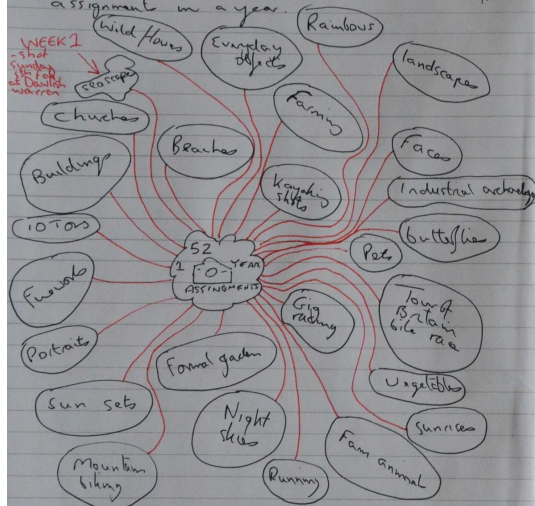 assignment in a year.
WEEK 1
- shot
Sunday
5th Feb
at Dawlish
Warren
Seascapes
Wild Horses
Everyday
objects
Rainbows
landscapes
Churches
Beaches
Farming
Faces
Buildings
Kayaking
shots
Industrial archeology
10 TORS
52
1 YEAR
ASSINGMENTS
Pets
butterflies
Fireworks
Gig
racing
Tour of
Britain
bike race
Portraits
Formal garden
Vegetables
Sun sets
Night
skies
Sunrises
Mountain
biking
Running
Farm animal